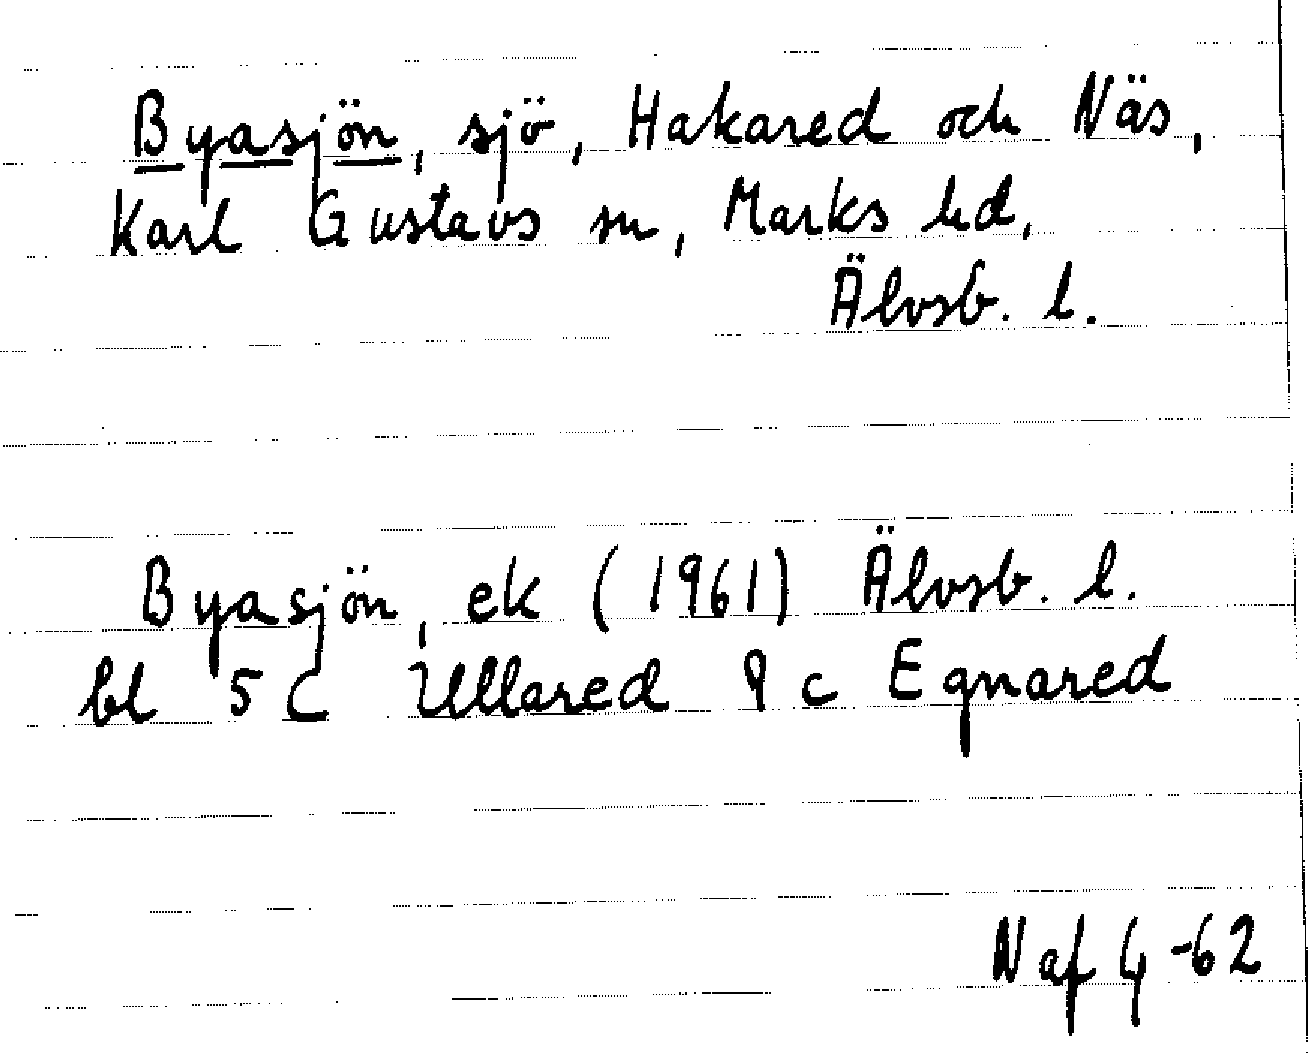 Byasjön, sjö, Hakared och Näs,
Karl Gustavs sn, Marks hd,
Älvsb. l.
Byasjön, ek (1961) Älvsb. l.
bl 5 C Ullared 9 c Egnared
Naf 4 -62